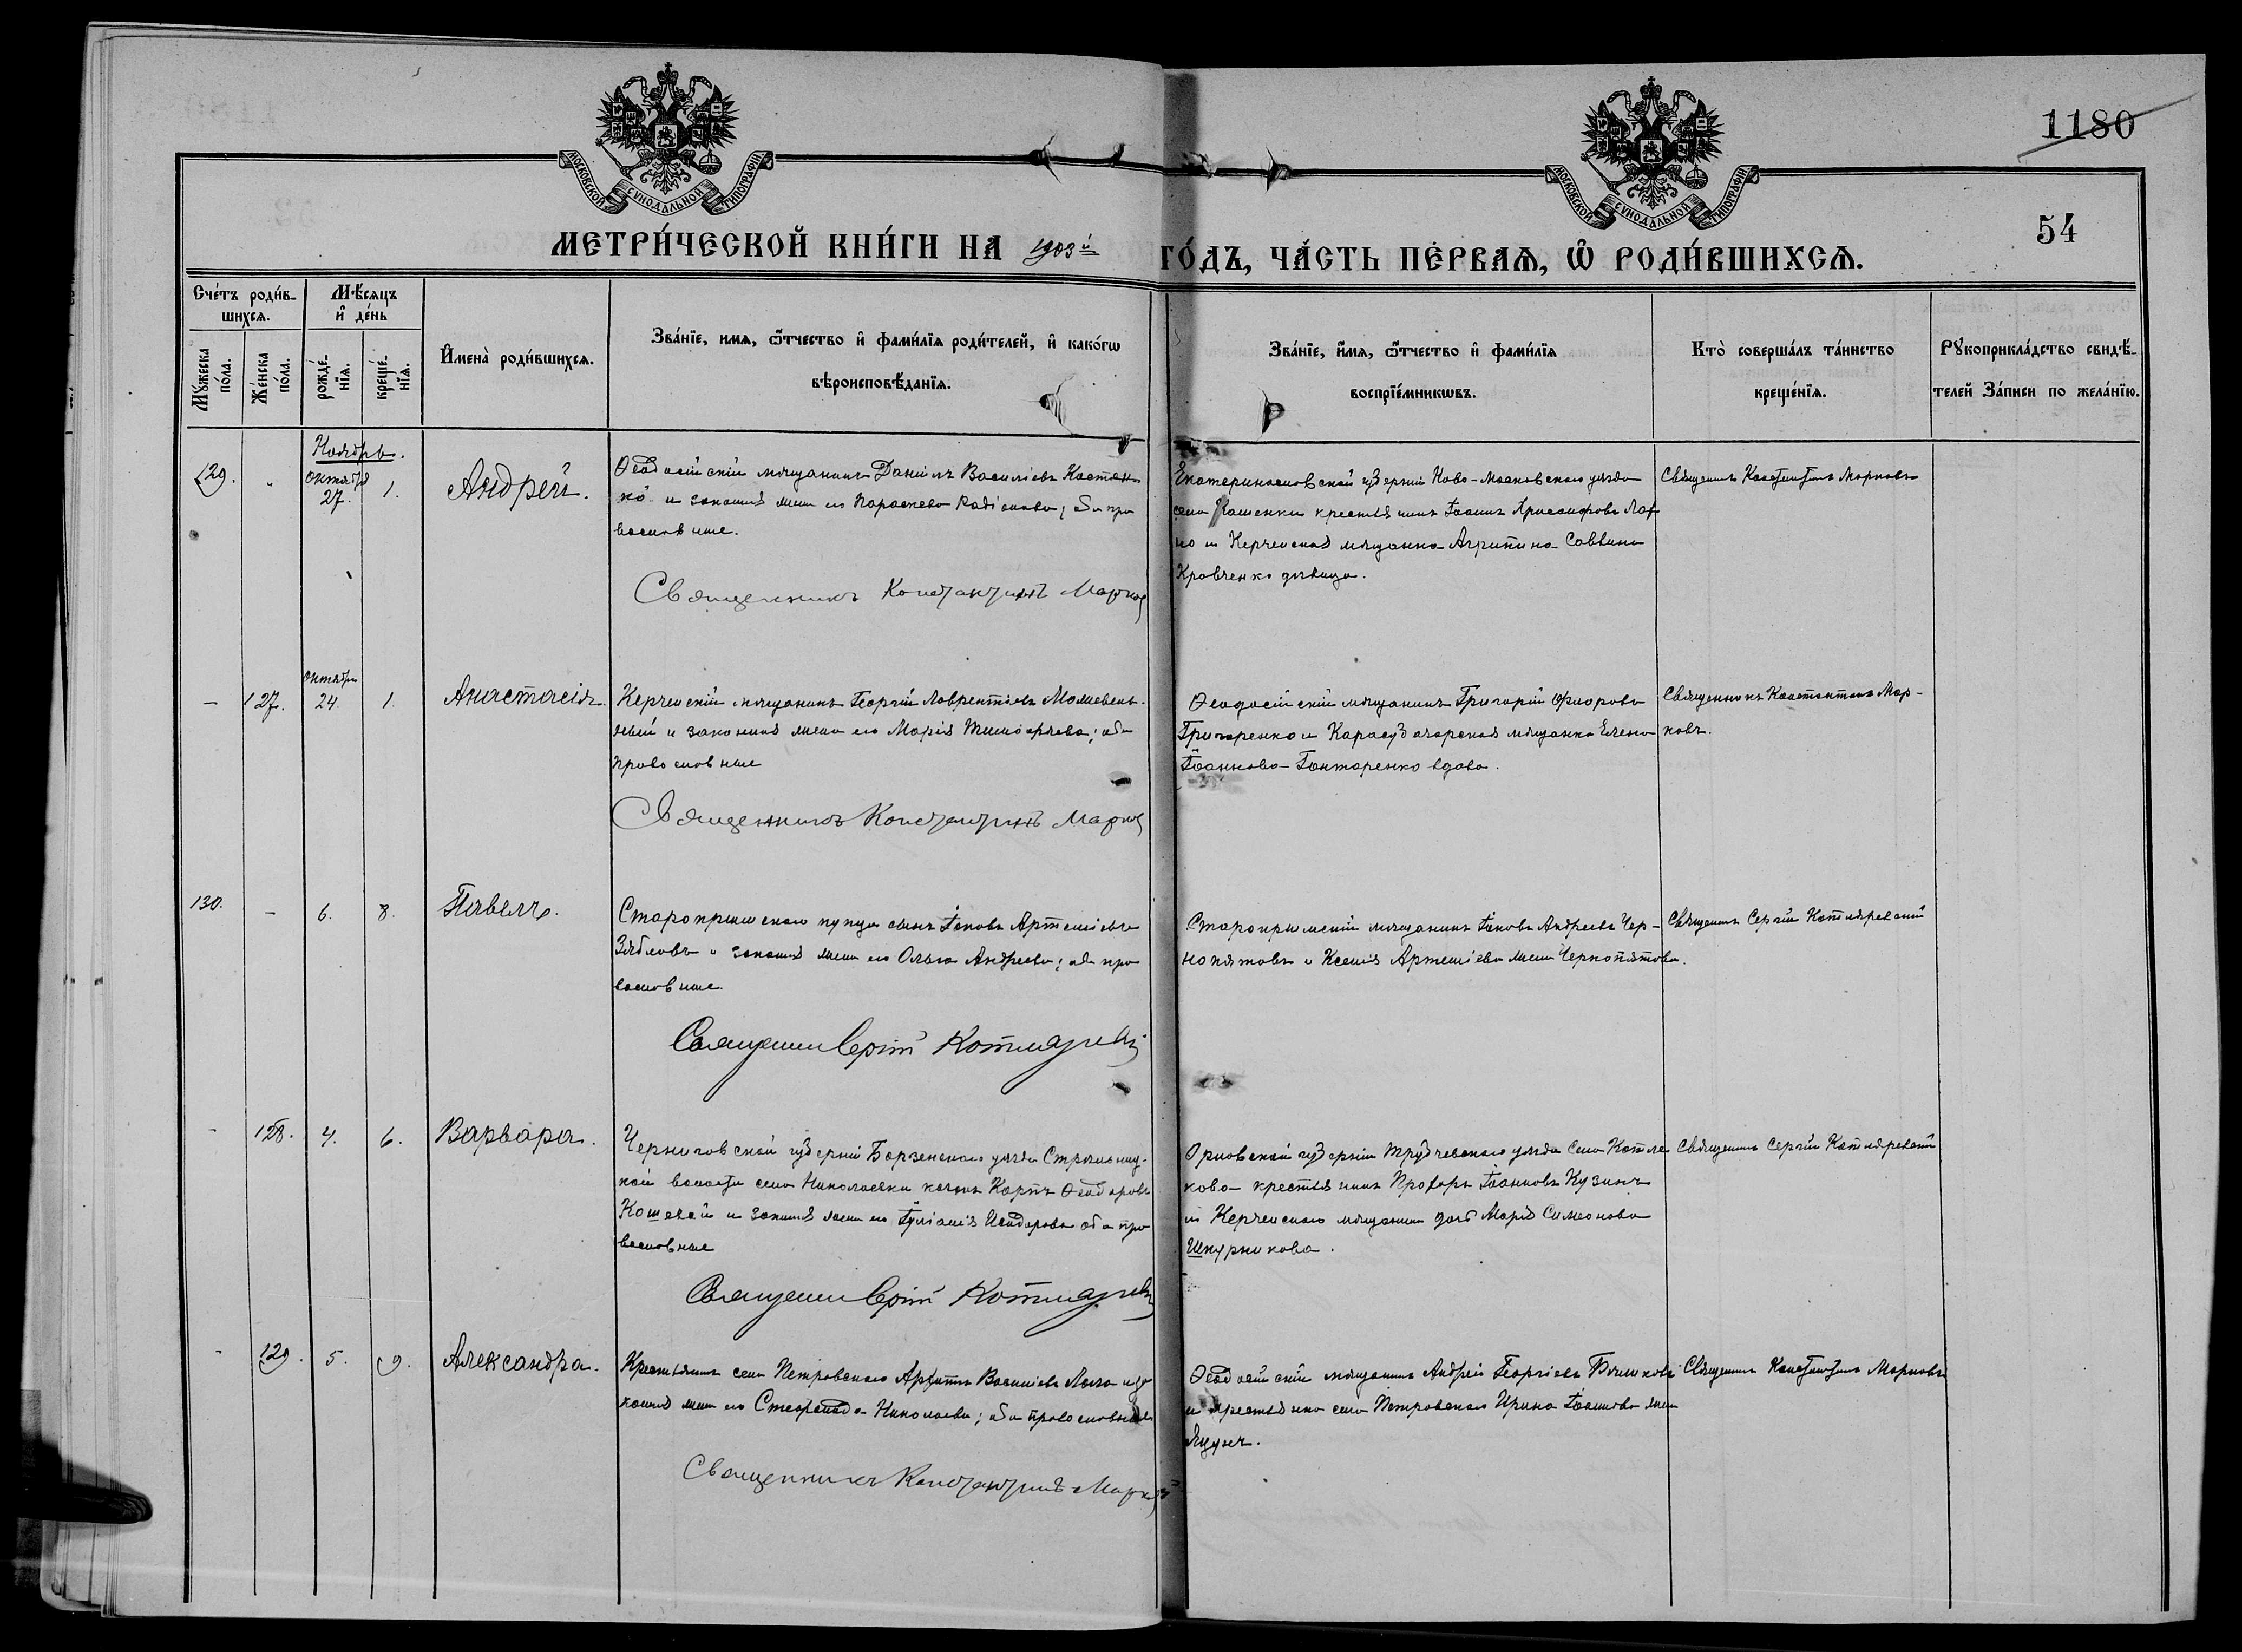 1180
54
МОСКОВСКОЙ СѴНОДАЛЬНОЙ ТИПОГРАФІИ
МОСКОВСКОЙ СѴНОДАЛЬНОЙ ТИПОГРАФІИ
МЕТРИ́ЧЕСКОЙ КНИ́ГИ НА 1903й ГО́ДЪ, ЧА́СТЬ ПЕ́РВАѦ, Ѡ҆ РОДИ́ВШИХСѦ.
Сче́тъ роди́в-
шихсѧ.
Мѣ́сѧцъ
и҆ де́нь
Мꙋ́жеска
по́ла.
Же́нска
по́ла.
рожде́-
нїѧ.
креще́-
нїѧ.
И҆мена̀ роди́вшихсѧ.
Зва́нїе, имѧ, ѻ҆́тчество и҆ фами́лїѧ роди́телей, и҆ како́гѡ
вѣроисповѣ́данїѧ.
Зва́нїе, и҆́мѧ, ѻ҆́тчество и҆ фами́лїѧ
воспрїе́мникѡвъ.
Кто̀ соверша́лъ та́инство
креще́нїѧ.
Рꙋкоприкла́дство свидѣ́-
телей За́писи по жела́нїю.
Ноябрь.
129. " Октября 27. 1. Андрей.
Ѳеодосійскій мѣщанинъ Даніилъ Василіевъ Костен-
ко и законная жена его Параскева Родіонова; оба пра
вославные.
Священникъ Константинъ Марковъ
Екатеринославской губерніи Ново-Московскаго уѣзда
села крестьянинъ Іоаннъ
и Керченская мѣщанка Агрипина Саввина
Кравченко дѣвица.
Священникъ Константинъ Марковъ
— 127. Октября 24. 1. Анастасія.
Керченскій мѣщанинъ Георгій Лаврентіевъ
и законная жена его Марія Тимоѳеева; оба
православные
Священникъ Константинъ Марковъ
Ѳеодосійскій мѣщанинъ Григорій Флорова
Григоренко и Карасубазарская мѣщанка Елена
Іоаннова Гонтаренко вдова.
Священникъ Константинъ Мар-
ковъ.
130. — 6. 8. Павелъ.
Старокрымскаго купца сынъ Іаковъ Артеміевъ
Зябловъ и законная жена его Ольга Андреева; оба пра
вославные.
Священникъ Сергій Котляревскій
Старокрымскій мѣщанинъ Іаковъ Андреевъ Чер-
нопятовъ и Ксенія Артеміева жена Чернопятова.
Священникъ Сергій Котляревскій
- 128. 4. 6. Варвара.
Черниговской губерніи Борзенскаго уѣзда
кой волости села Николаевки Карпъ Ѳеодоровъ
Кошевой и законная жена его Іуліанія Исидорова оба пра
вославные
Священникъ Сергій Котляревскій
Орловской губерніи Трубчевскаго уѣзда села Котля
кова крестьянинъ Прохоръ Іоанновъ Кузинъ
и Керченскаго мѣщанина дочь Марія Симеонова
Шкурникова.
Священникъ Сергій Котляревскій
- 129. 5. 9. Александра.
Крестьянинъ села Петровскаго Архипъ Василіевъ и за
конная жена его Стефанида Николаева; оба православные
Священникъ Константинъ Марковъ
Ѳеодосійскій мѣщанинъ Андрей Георгіевъ
и крестьянка села Петровскаго Ирина Іоаннова жена
Яцунъ.
Священникъ Константинъ Марковъ